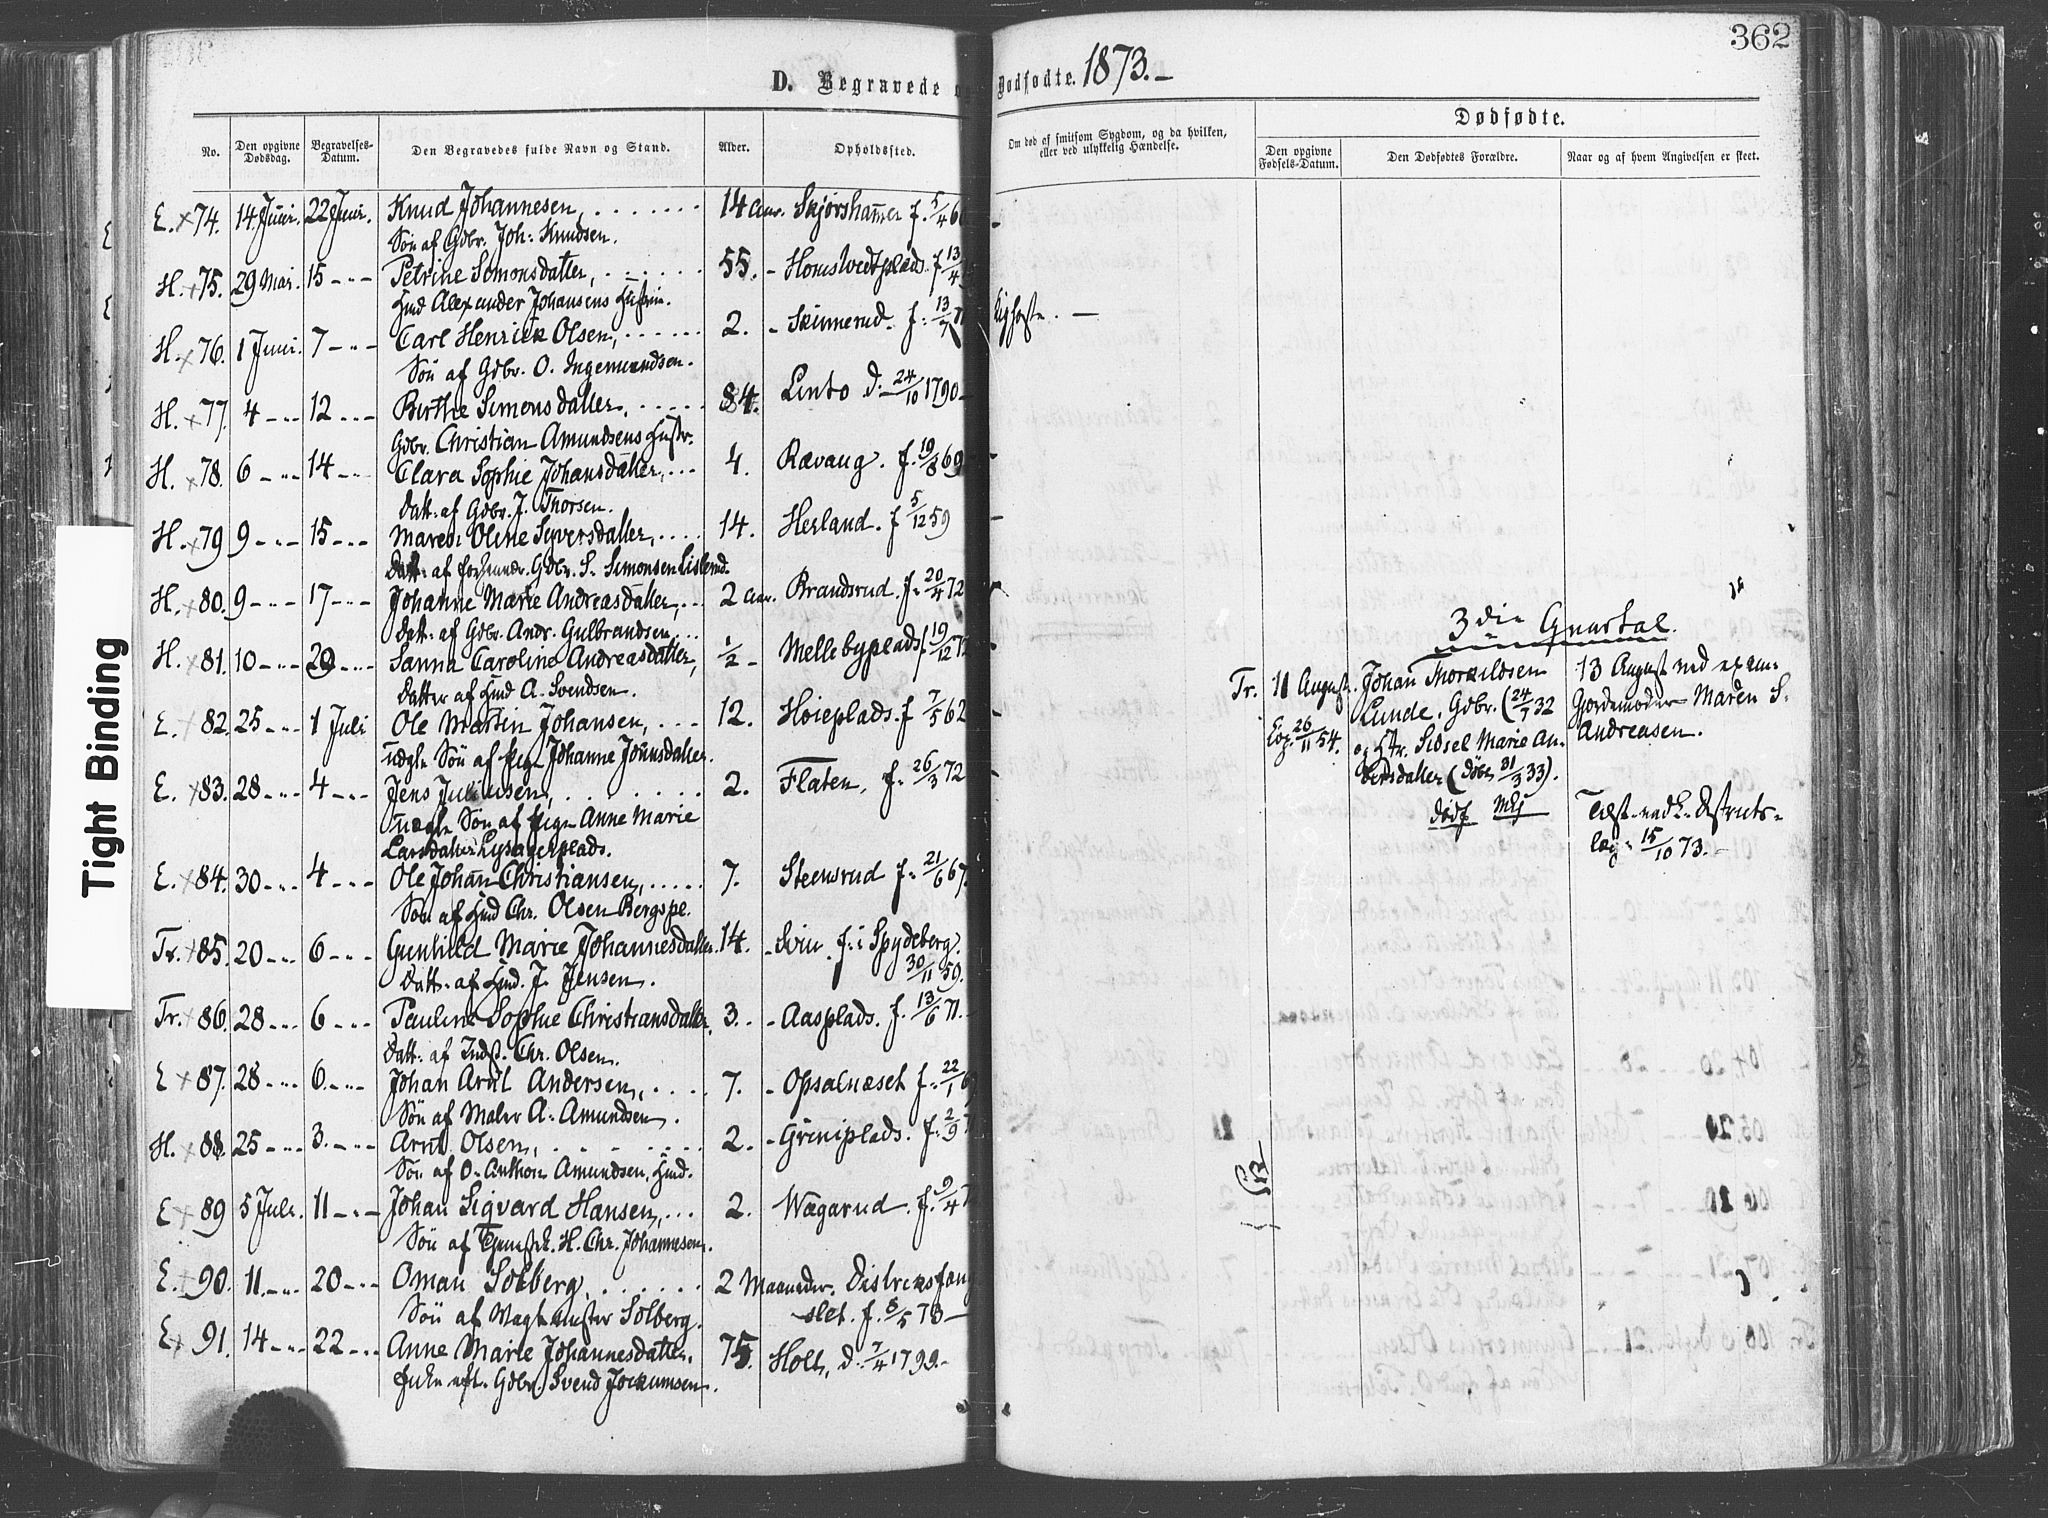 362
D. Begravede o Dødfødte. 1873.-
No.
Den opgivne Dødsdag.
Begravelses-Datum.
Den Begravedes fulde Navn og Stand.
Alder.
Opholdssted.
Om død af smitsom Sygdom, og da hvilken, eller ved ulykkelig Hændelse.
Dødfødte.
Den opgivne Fødsels-Datum.
Den Dødfødtes Forældre.
Naar og af hvem Angivelsen er skeet.
E. 74. 14 Juni. 22 Juni. Knud Johannesen, 14 Aar. Skjørshammer f. 5/4 6
Søn af Gdbr. Joh: Knudsen.
H. 75. 29 Mai. 15 - " - Petrine Simonsdatter, 55. - f 13/4
Hmd Alexander Johansens Hustru.
H. 76. 1 Juni. 7 - " - Carl Henrick Olsen, 2. - Skinnerud. f: 13/7 7
Søn af Gdbr. O. Ingemundsen.
H. 77. 4 - " - 12 - " - Birthe Simonsdatter, 84. Linto d. 24/10 1790 -
Gdbr. Christian Amundsens Hustr.
H. 78. 6 - " - 14 - " - Clara Sophie Johansdatter, 4. Rævaug. f. 19/8 69
Datt. af Gdbr. J. Thorsen.
H. 79 9 - " - 15 - " - Maren Oline Syversdatter, 14. Herland. f 5/12 59
Datt. af Gdbr. S. Simonsen
H. 80. 9 - " - 17 - " - Johanne Marie Andreasdatter, 2 Aar. Brandsrud. f. 20/4 72
Datt. af Gdbr. Andr. Gulbrandsen.
H. 81. 10 - " - 20 - " - Sanna Caroline Andreasdatter, 1/2 - Mellebyplads f 19/12 72
Datter af Hmd A. Svendsen.
E. 82. 25 - " - 1 Juli Ole Martin Johansen, 12. Høieplads. f 7/5 62
uægte Søn af Pige Johanne Jonasdatter.
E. 83. 28 - " - 4 - " - Jens Juliusen, 2. Flaten, f. 26/3 72
uægte Søn af Pige Anne Marie
Larsdatter Lysagerplads.
E. 84. 30 - " - 4 - " - Ole Johan Christiansen, 7. Steensrud f. 21/6 67
Søn af Hmd Chr. Olsen Bergspl.
Tr. 85. 20 - " - 6 - " - Gunhild Marie Johannesdatter 14. - f. i Spydeberg.
Datt. af Hmd. J. Jensen. 30/11 59.
Tr. 86. 28 - " - 6 - " - Pauline Sophie Christiansdatter, 3. - Aasplads. f. 13/6 71.
Datt. af Indst. Chr. Olsen.
E 87. 28 - " - 6. - " - Johan Arnt Andersen, 7. - Opsalnæset f. 22/1 6
Søn af Maler A. Amundsen.
H. 88. 25 - " - 3. - " - Arnt Olsen, 2. - Griniplads. f. 2/9 7
Søn af O. Anthon Amundsen, Hmd.
E 89 5 Juli. 11 - " - Johan Sigvard Hansen, 2. Wægarud. f. 9/4 7
Søn af H. Chr. Johannesen.
E. 90. 11 - " - 20 - " - Oman Solberg, 2 Maaneder. Distriksfæng
Søn af Vagtmester Solberg. slet. f. 5/5 73 -
E. 91. 14 - " - 22 - " - Anne Marie Johannesdatter, 75. Holt, d. 7/4 1799. -
Enke eft. Gdbr. Svend Jockumsen.
3die Quartal.
Tr. 11 August. Johan Thorkildsen 13 August ved exam.
Lunde, Gdbr. (24/7 32 Gjordemoder Maren S.
26/11 54. og Hr. Sidsel Marie An- Andreasen.
dersdatter (døbt 31/3 33).
dødf Tilst. ved L. Distrikts-
læg. 15/10 73. -
Tight Binding